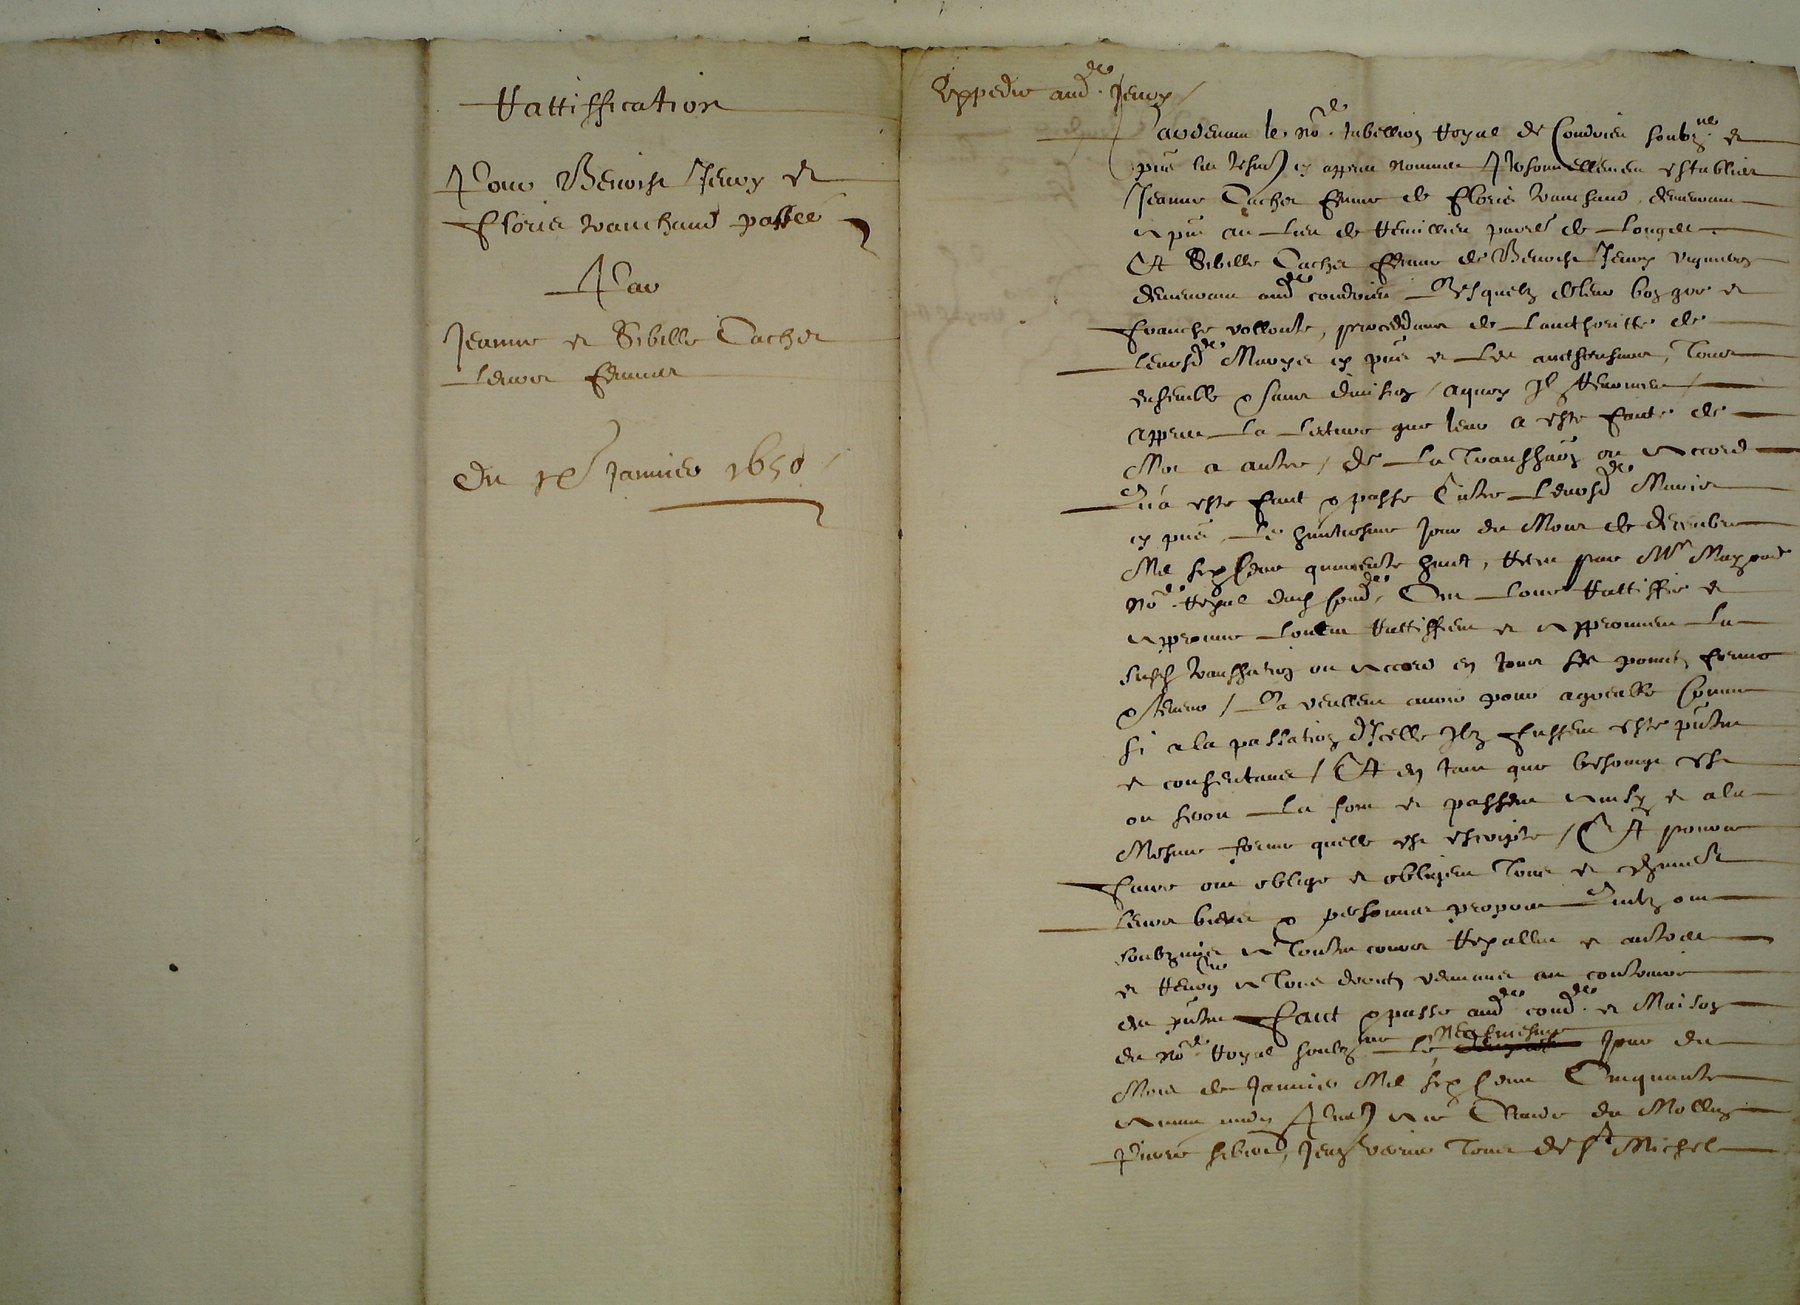 Rattiffication
Pour Benoist Jenoy et
Floris Vanchaud passée
Par
Jeanne et Sibille Tacher
leurs femmes
Du 9e Janvier 1650
Expedie aud. Jenoy
Pardevant le no.re tabellion Royal de Condrieu soubz.né et
pnt les tesm. en appres nommez Personnellement establies
Jeanne Tacher femme de Floris Vanchaud, demeurant
a pnt au lieu de parr. de Longes
Et Sibille Tacher femme de Benoist Jenoy vigneron
demeurant aud. condrieu Lesquelz de leur bon gre et
franche vollonte, proceddant de Lauthoritte de
leursd. Marys cy pnts et les authorisant, Tous
ensemble & sans division, a quoy Ilz Renoncent
appres La Lecture que leur a este faicte de
Mot a autre, de La Transaction ou Accord
Qui a este faict & passe Entre Leursd. Maris
cy pnts, Le huictiesme jour du Mois de decembre
Mil six cent quarente huict, Receu par Mr
no.re Royal dud. cond., Ont Loue Rattiffie et
approuve Louent Rattiffient et Approuvent La
susd. transaction ou accord en tous ses points forme
& teneur, La veullent avoir pour agreable Comme
si a la passation d'Icelle Ilz fussent este pntes
et consentans, Et en tant que besoing est
ou seroit La font et passent Ainsy et a la
Mesme forme quelle est escripte, Et pour ce
faire ont oblige et obligent Tous et chacuns
leurs biens & personnes propres Quilz ont
soubzmis A Toutes cours Royalles et autres
et Renon. A Tous droictz venans au contraire
des pntes Faict & passe aud. cond. et Maison
du no.re Royal soubz.né Le Neufviesme jour du
Mois de Janvier Mil six cent Cinquante
Avant midy Pnts A ce Claude du Mollin
Pierre, Jean tous de St Michel